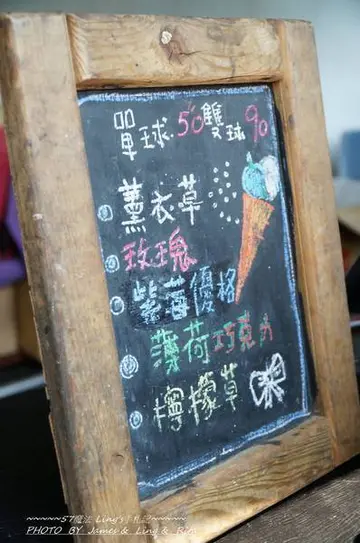 單球.50 雙球90
薰衣草
玫瑰
紫蘇優格
薄荷巧克力
檸檬草
~~~~~57魔法 Ling's手札記~~~~~
PHOTO BY James & Ling & Rin